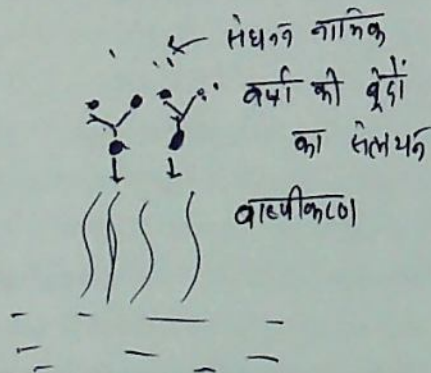 संघनन नाभिक
वर्षा की बूंदों
का संलयन
वाष्पीकरण